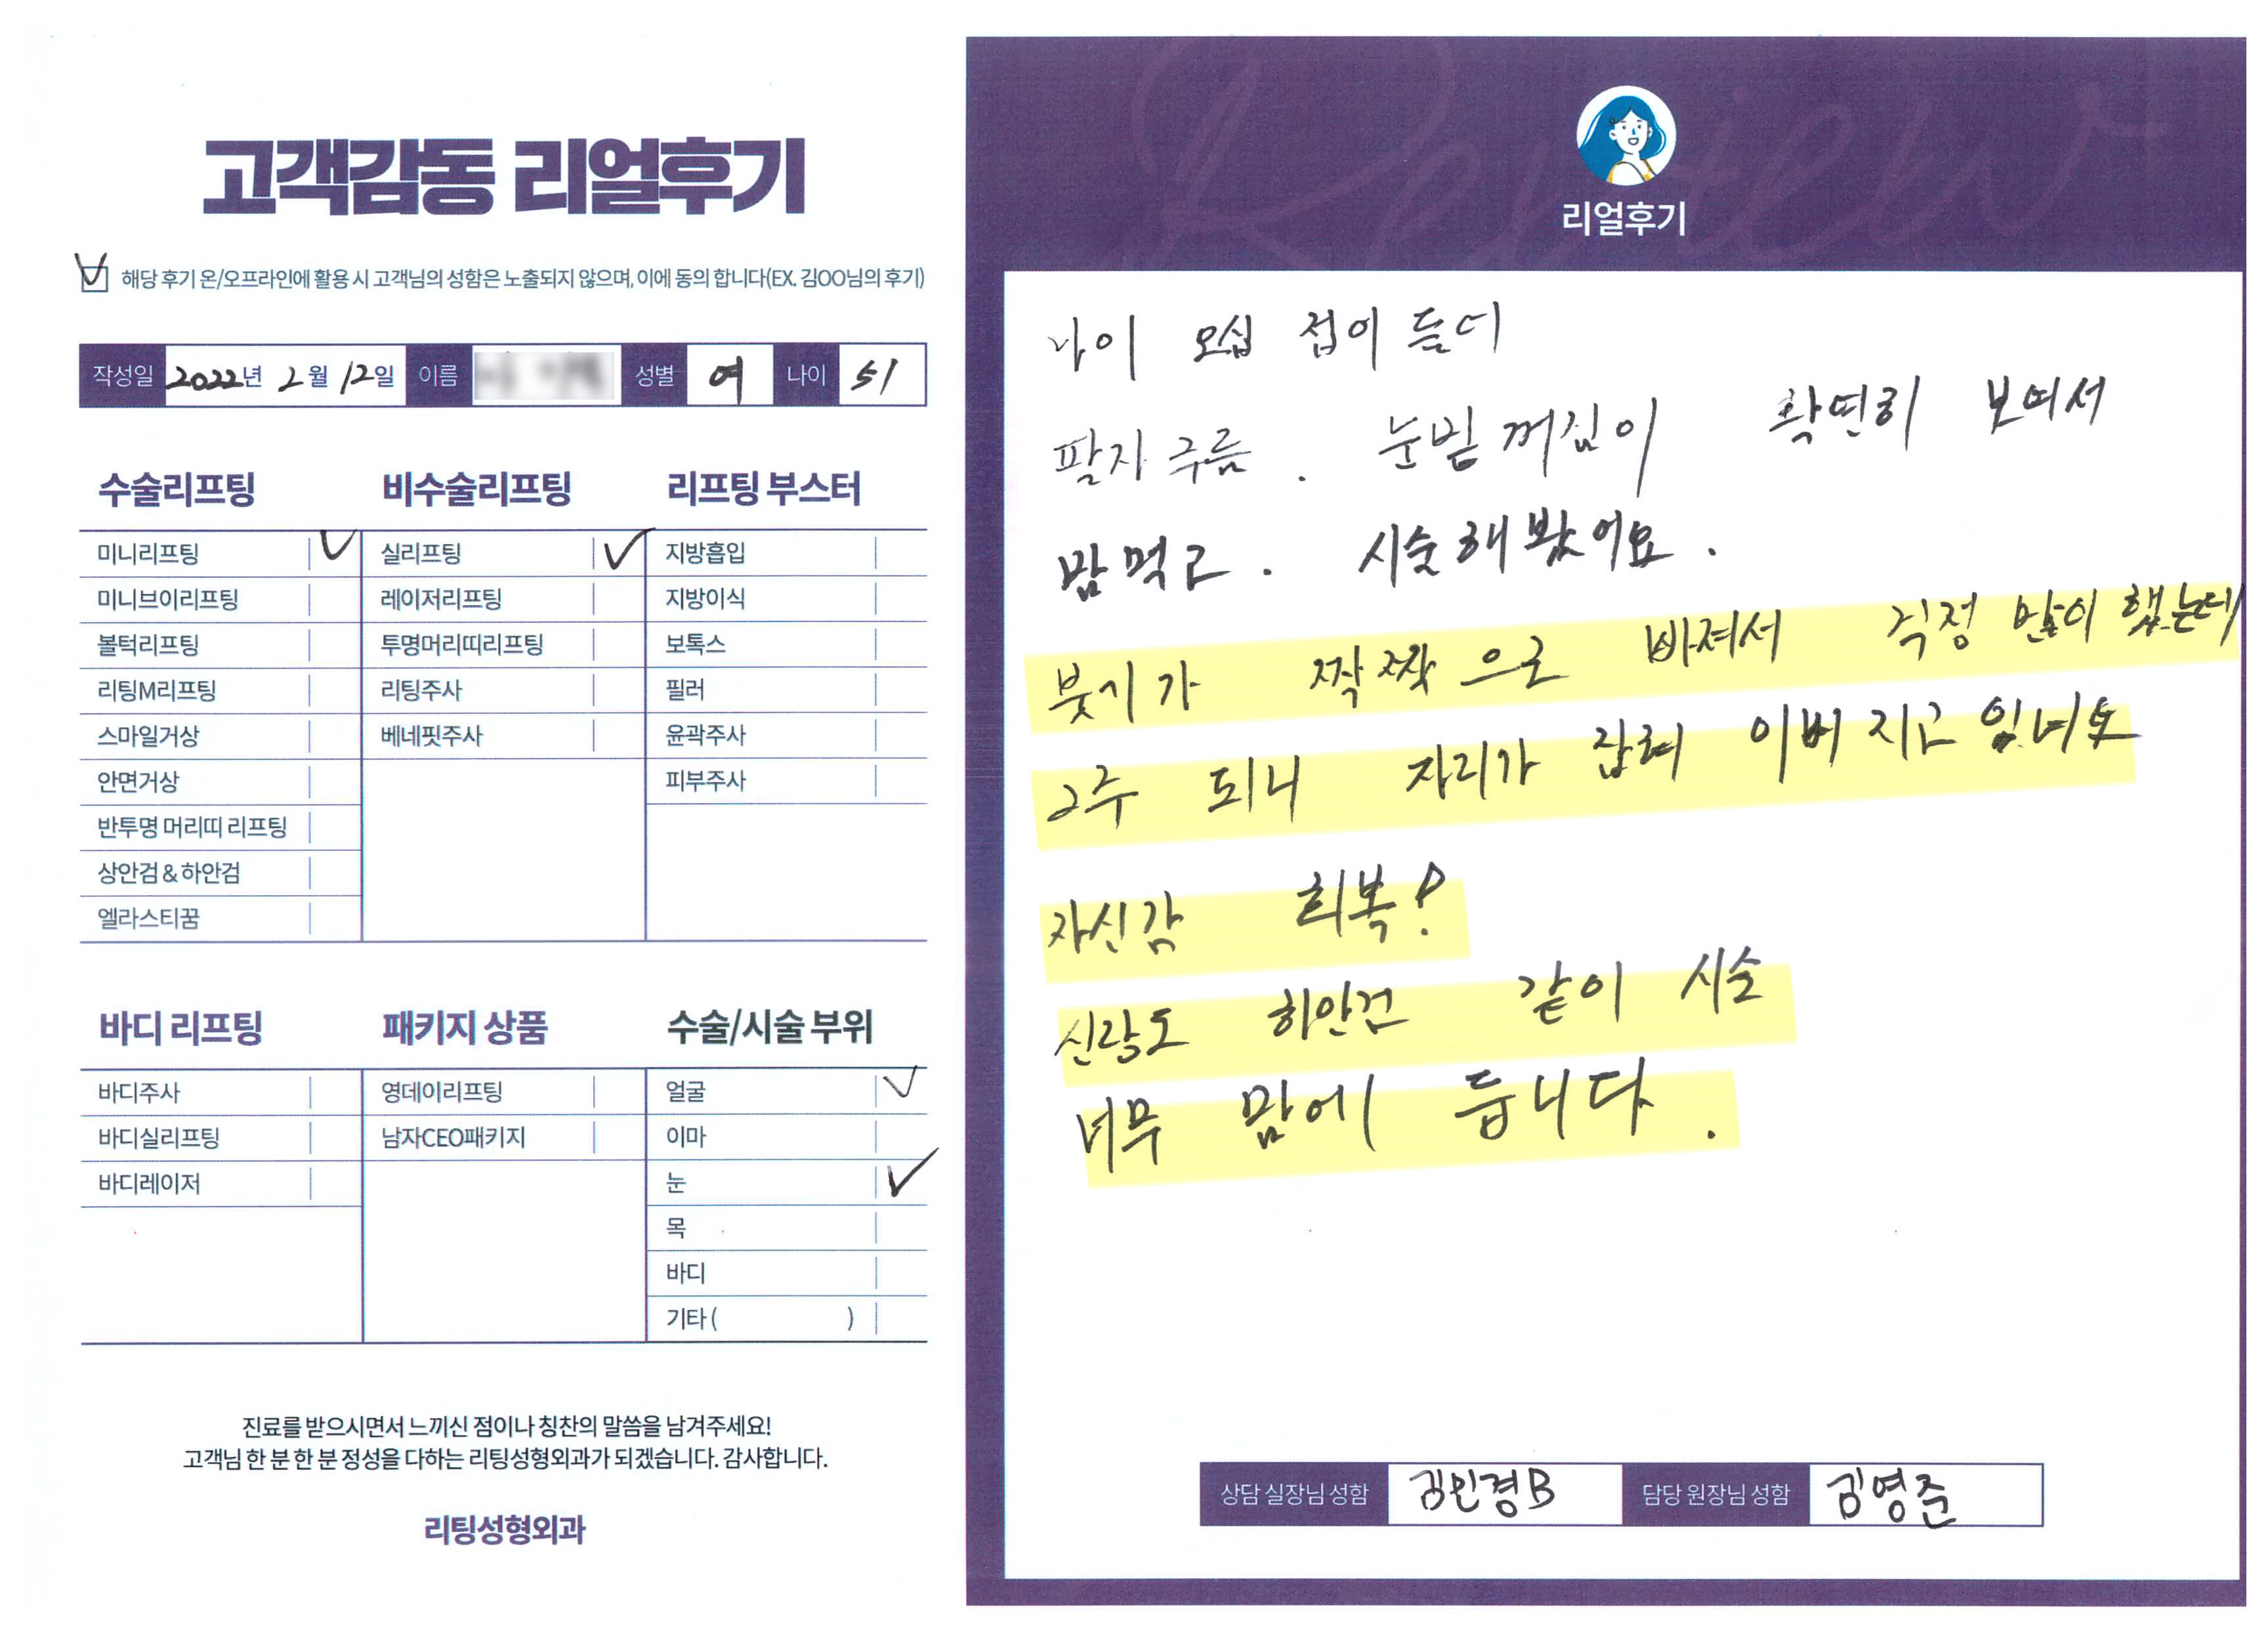 고객감동 리얼후기
해당 후기 온/오프라인에 활용 시 고객님의 성함은 노출되지 않으며, 이에 동의 합니다(EX. 김OO님의 후기)
작성일 2022년 2월 12일 이름 성별 여 나이 51
수술리프팅
미니리프팅
미니브이리프팅
볼턱리프팅
리팅M리프팅
스마일거상
안면거상
반투명 머리띠 리프팅
상안검 & 하안검
엘라스티꿈
비수술리프팅
실리프팅
레이저리프팅
투명머리띠리프팅
리팅주사
베네핏주사
리프팅 부스터
지방흡입
지방이식
보톡스
필러
윤곽주사
피부주사
바디 리프팅
바디주사
바디실리프팅
바디레이저
패키지 상품
영데이리프팅
남자CEO패키지
수술/시술 부위
얼굴
이마
눈
목
바디
기타 ( )
진료를 받으시면서 느끼신 점이나 칭찬의 말씀을 남겨주세요!
고객님 한 분 한 분 정성을 다하는 리팅성형외과가 되겠습니다. 감사합니다.
리팅성형외과
Review
리얼후기
나이 오십 접이 들더
팔자 주름 . 눈밑 꺼짐이 확연히 보여서
맘 먹고 . 시술 해 봤어요 .
붓기가 짝짝으로 빠져서 걱정 많이 했는데
2주 되니 자리가 잡혀 이뻐 지고 있네요
자신감 회복!
신랑도 하안검 같이 시술
너무 맘에 듭니다.
상담 실장님 성함 김민경B 담당 원장님 성함 김영준